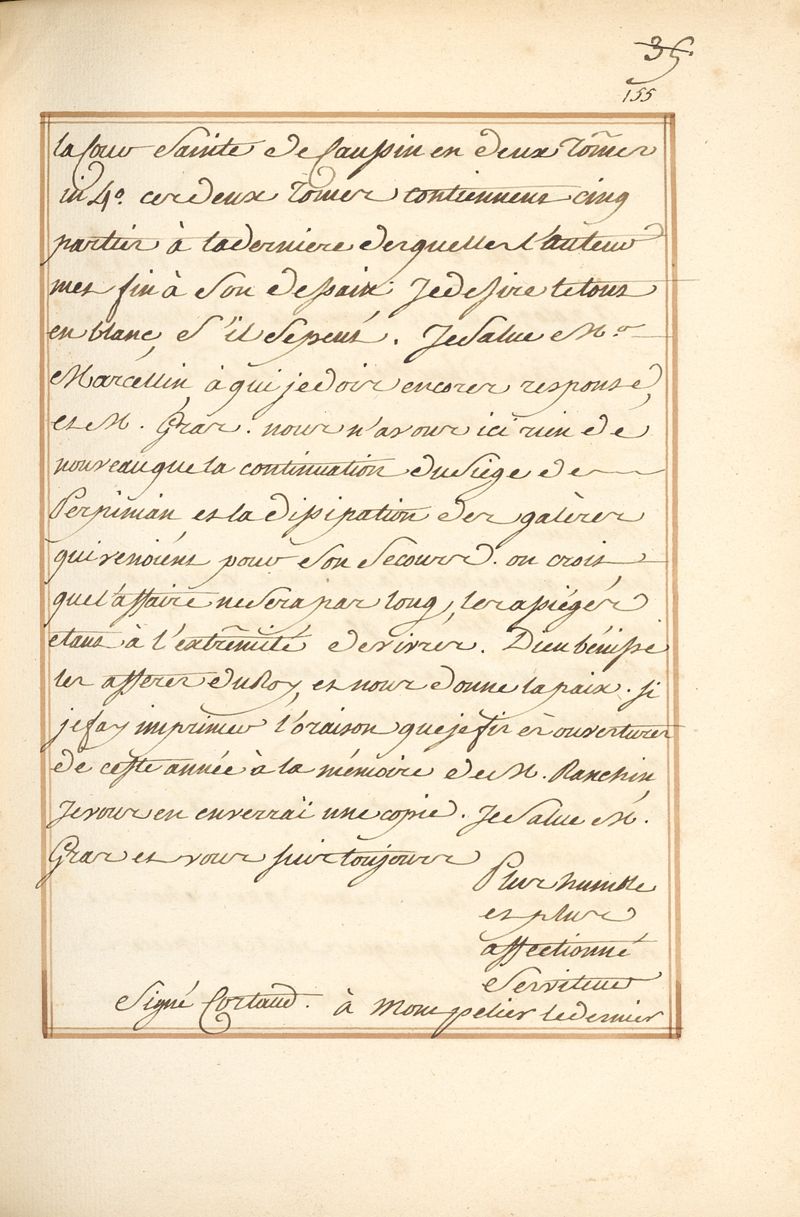 35
155
la Cour Sainte de Caussin en deux Tômes
in 4º. ces deux Tomes contiennent cinq
parties à la derniere desquelles l'auteur
met fin à Son dessain. Je desire le tout
en blanc, S'il Se peut. Je Salue Mr.
Marcéllin, à qui je dois encores responsé,
et M. Gras. nous n'avons ici rien de
nouveau que la continuation du Siége de
Perpinian et la dissipation des galères
qui venoient pour Son Secours. on croit
que l'affaire ne Sera pas long, les assiégés
etant à l'extrêmité de vivres. Dieu bénisse
les afferes du Roy, et nous donne la paix. Si
je fay imprimer l'oraison que je fis ès ouvertures
de ceste année à la mémoire de M. Ranchin,
Je vous en enverraï une copie. Je Salue M.
Gras et vous suis toujours
Plus humble
et plus
affectionné
Serviteur
Signé Cortaud. à Montpelier le dernier